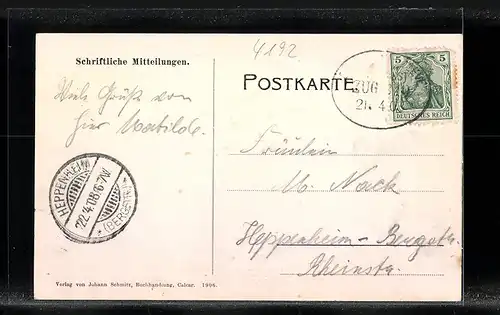 4192
Schriftliche Mitteilungen.
POSTKARTE
5 5
DEUTSCHES REICH
ZUG
21. 4.0
Viele Grüße von
hier Mathilde
HEPPENHEIM
22.4.08.6-7N.
*(BERGSTR.)
Fräulein
M. Nack
Heppenheim-Bergstr.
Rheinstr.
Verlag von Johann Schmitz, Buchhandlung, Calcar. 1906.